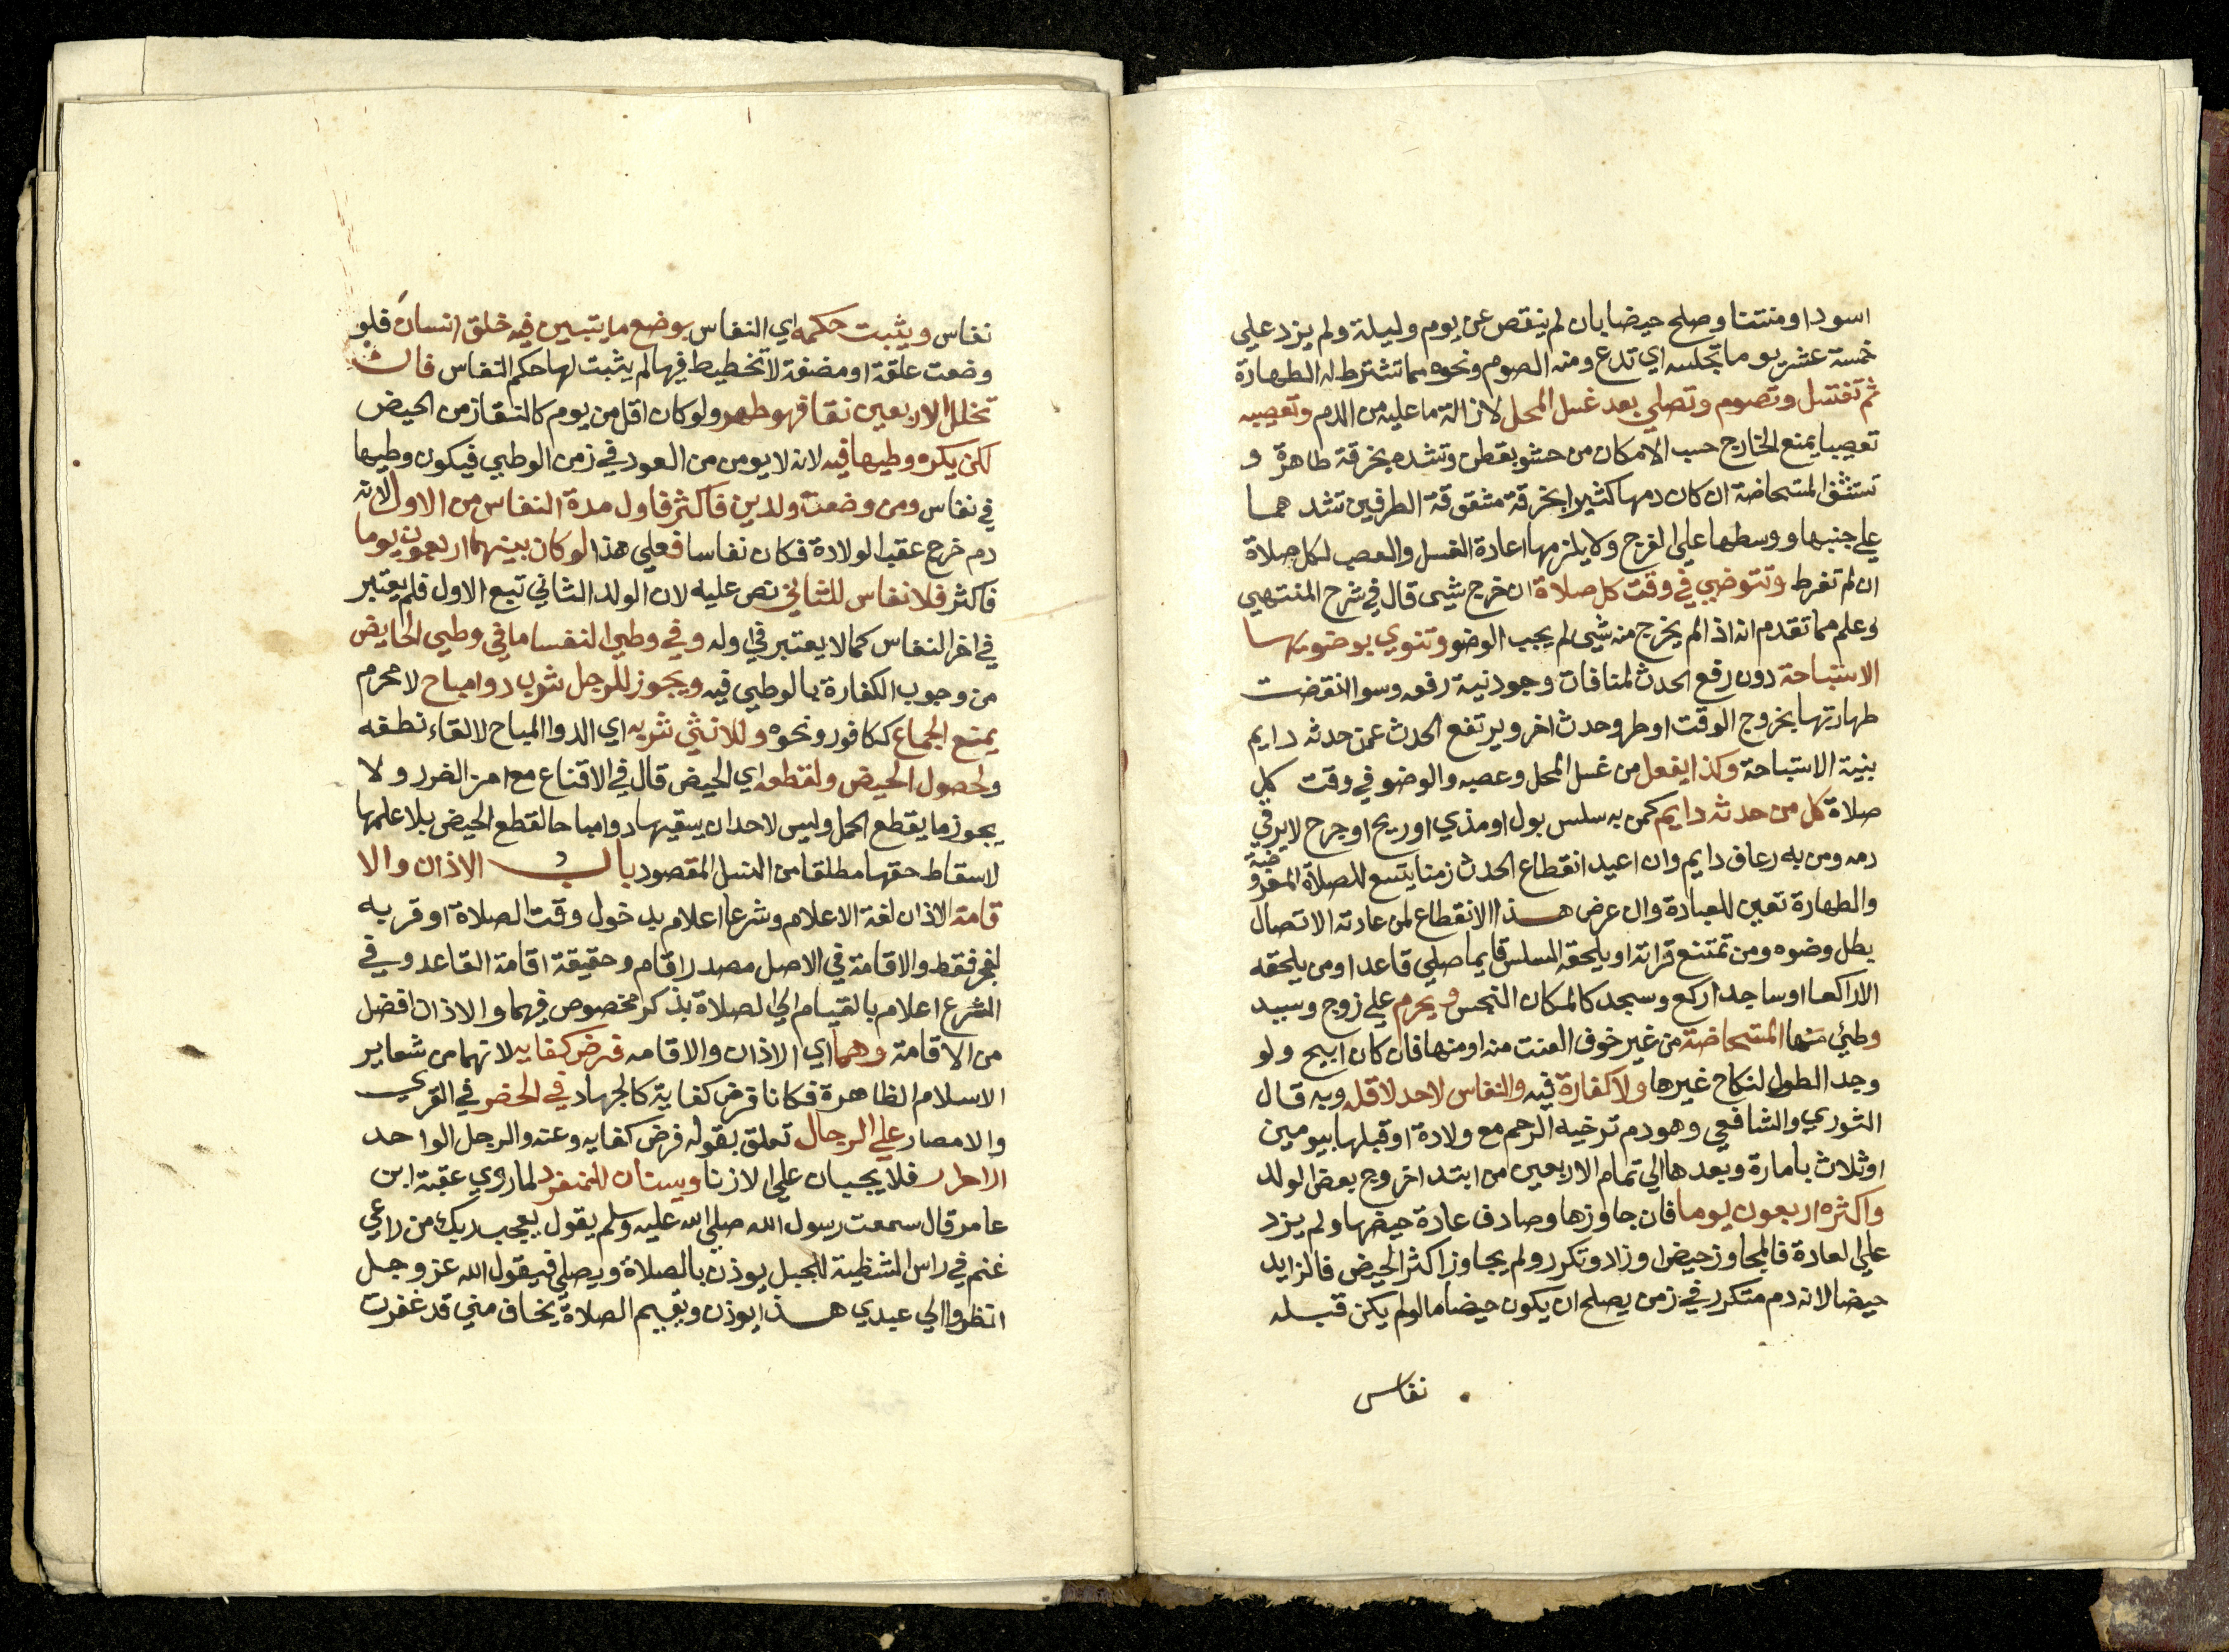 اسود او منتنا وصلح حيضا بان لم ينقص عن يوم وليلة ولم يزد علي
خمسة عشر يوما تجلسه اي تدع ومنه الصوم ونحوه مما تشترط له الطهارة
ثم تغتسل وتصوم وتصلي بعد غسل المحل لازالة ما عليه من الدم وتعصيبه
تعصيبا يمنع الخارج حسب الامكان من حشو بقطن وتشده بخرقة طاهرة و
تستثفر المستحاضة ان كان دمها كثيرا بخرقة مشقوقة الطرفين تشدهما
علي جنبها ووسطها علي الفرج ولا يلزمها اعادة الغسل والعصب لكل صلاة
ان لم تفرط وتتوضي في وقت كل صلاة ان خرج شيى قال في شرح المنتهي
وعلم مما تقدم انه اذا لم يخرج منه شيى لم يجب الوضو وتنوي بوضويها
الاستباحة دون رفع الحدث لمنافات وجود نية رفعه وسوا انتقضت
طهارتها بخروج الوقت او طرو حدث اخر ويرتفع الحدث عمن حدثه دايم
بنية الاستباحة وكذا يفعل من غسل المحل وعصبه والوضو في وقت كل
صلاة كل من حدثه دايم كمن به سلس بول او مذي او ريح او جرح لا يرقي
دمه ومن به رعاف دايم وان اعيد انقطاع الحدث زمنا يتسع للصلاة المفروضة
والطهارة تعين للعبادة وان عرض هذا الانقطاع لمن عادته الاتصال
بطل وضوه ومن تمتنع قراته او يلحقه السلس قايما صلي قاعدا ومن يلحقه
الا راكعا او ساجدا ركع وسجد كالمكان النجس ويحرم علي زوج وسيد
وطئ منها المستحاضة من غير خوف العنت منه او منها فان كان ابيح ولو
وجد الطول لنكاح غيرها ولا كفارة فيه والنفاس لا حد لاقله وبه قال
الثوري والشافعي وهو دم ترخيه الرحم مع ولادة او قبلها بيومين
او ثلاث بامارة وبعدها الي تمام الاربعين من ابتدا خروج بعض الولد
واكثره اربعون يوما فان جاوزها وصادف عادة حيضها ولم يزد
علي العادة فالمجاوز حيض او زاد وتكرر ولم يجاوز اكثر الحيض فالزايد
حيضا لانه دم متكرر في زمن يصلح ان يكون حيضا ما لو لم يكن قبله
نفاس
نفاس ويثبت حكمه اي النفاس بوضع ما يتبين فيه خلق انسان فلو
وضعت علقة او مضغة لا تخطيط فيها لم يثبت لها حكم النفاس فان
تخلل الاربعين نقا فهو طهر ولو كان اقل من يوم كالنقا زمن الحيض
لكن يكره وطيها فيه لانه لا يومن من العود في زمن الوطي فيكون وطيها
في نفاس ومن وضعت ولدين فاكثر فاول مدة النفاس من الاول لانه
دم خرج عقب الولادة فكان نفاسا فعلي هذا لو كان بينهما اربعون يوما
فاكثر فلا نفاس للثاني نص عليه لان الولد الثاني تبع الاول فلم يعتبر
في اخر النفاس كما لا يعتبر في اوله وفي وطي النفسا ما في وطي الحايض
من وجوب الكفارة بالوطي فيه ويجوز للرجل شرب دوا مباح لا محرم
يمنع الجماع ككافور ونحوه وللانثي شربه اي الدوا المباح لالقاء نطفه
ولحصول الحيض ولقطعه اي الحيض قال في الاقناع مع امن الضرر ولا
يجوز ما يقطع الحمل وليس لاحد ان يسقيها دوا مباحا لقطع الحيض بلا علمها
لاسقاط حقها مطلقا من النسل المقصود باب الاذان والا
قامة الاذان لغة الاعلام وشرعا اعلام بدخول وقت الصلاة او قربه
لفجر فقط والاقامة في الاصل مصدر اقام وحقيقة اقامة القاعد وفي
الشرع اعلام بالقيام الي الصلاة بذكر مخصوص فيهما والاذان افضل
من الاقامة وهما اي الاذان والاقامه فرض كفايه لانهما من شعاير
الاسلام الظاهرة فكانا فرض كفاية كالجهاد في الحضر في القري
والامصار علي الرجال تعلق بقوله فرض كفايه وعنه والرجل الواحد
الاحرار فلا يجبان علي الارقا ويسنان للمنفرد لما روي عقبة ابن
عامر قال سمعت رسول الله صلي الله عليه وسلم يقول يعجب ربك من راعي
غنم في راس الشظية للجبل يوذن بالصلاة ويصلي فيقول الله عز وجل
انظروا الي عبدي هذا يوذن ويقيم الصلاة يخاف مني قد غفرت